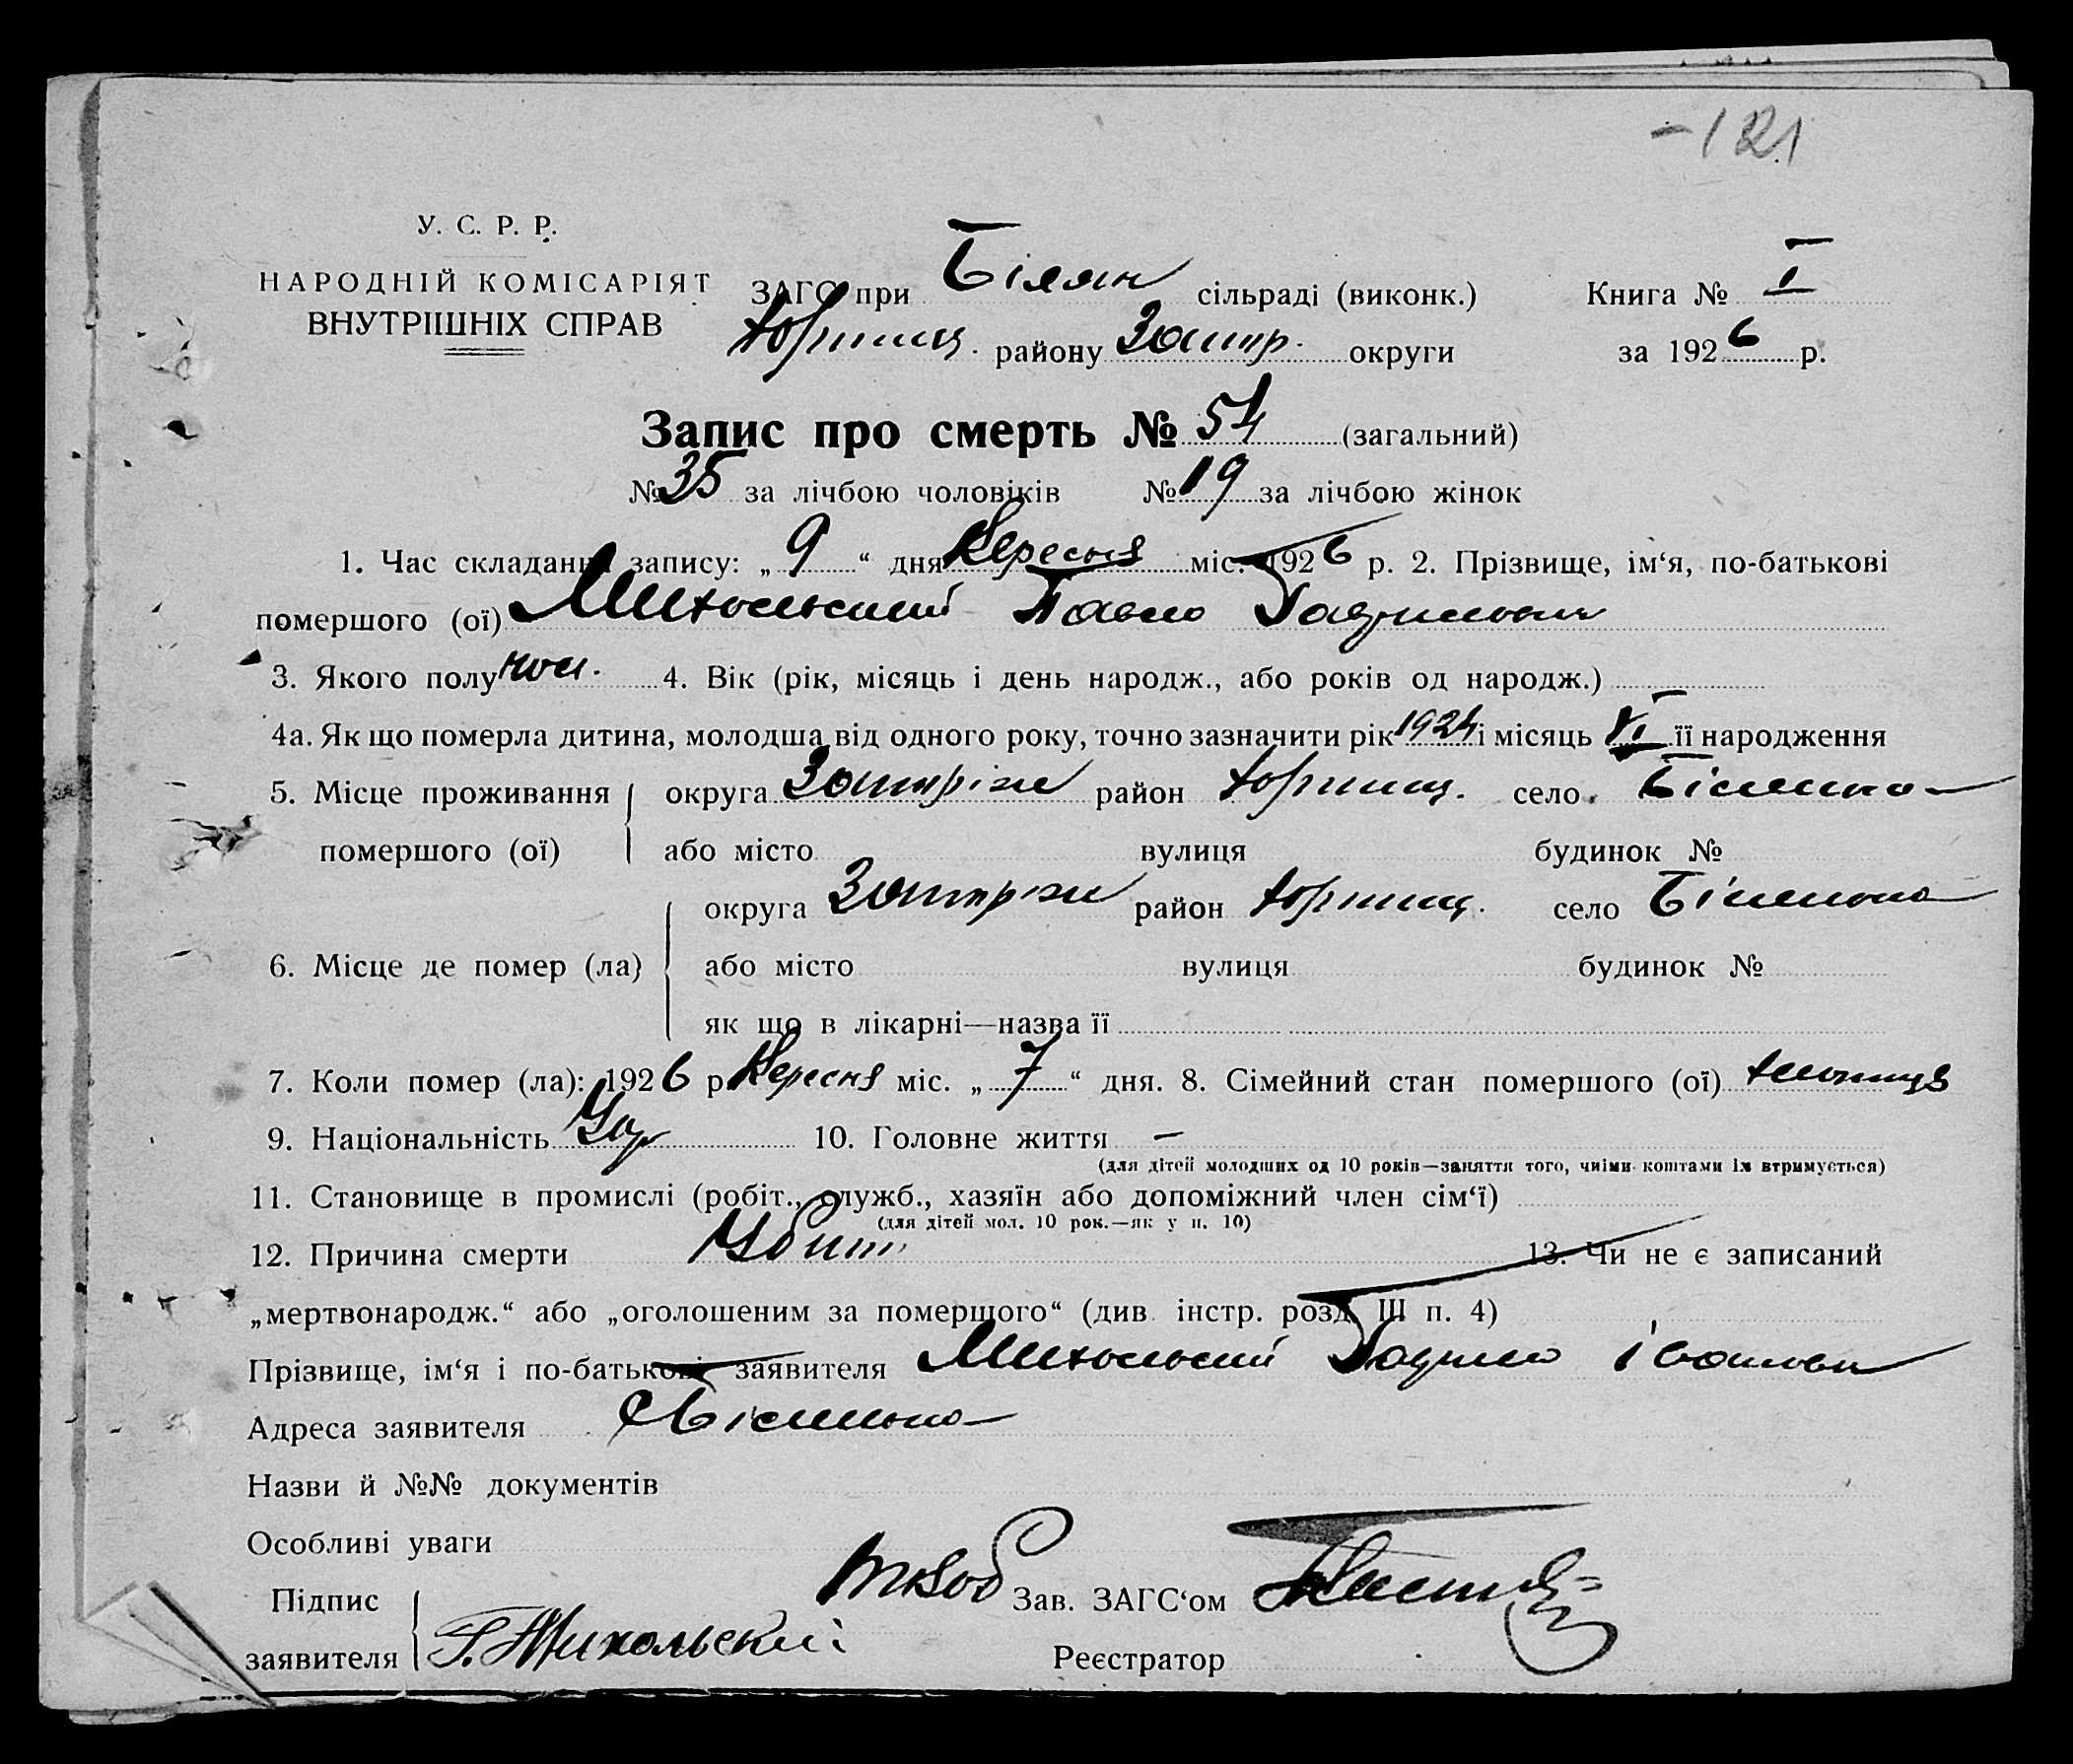 -121
У. С. Р. Р.
НАРОДНІЙ КОМІСАРІЯТ
ВНУТРІШНІХ СПРАВ
ЗАГС при Білян сільраді (виконк.) Книга № I
Хортиц. району Запор. округи за 1926 р.
Запис про смерть № 54 (загальний)
№ 35 за лічбою чоловіків № 19 за лічбою жінок
1. Час складання запису: „ 9 “ дня Вересня міс. 1926 р. 2. Прізвище, ім‘я, по-батькові
помершого (ої) Михольский Павло Гаврилович
3. Якого полу чол. 4. Вік (рік, місяць і день народж., або років од народж.)
4а. Як що померла дитина, молодша від одного року, точно зазначити рік 1924 і місяць VI її народження
5. Місце проживання помершого (ої) округа район Хортиц. село
або місто вулиця будинок №
6. Місце де помер (ла) округа район Хортиц. село
або місто вулиця будинок №
як що в лікарні—назва її
7. Коли помер (ла): 1926 р Вересня міс. „ 7 “ дня. 8. Сімейний стан помершого (ої) хлопець
9. Національність Укр 10. Головне життя –
(для дітей молодших од 10 років—заняття того, чиїми коштами їх втримується)
11. Становище в промислі (робіт., служб., хазяїн або допоміжний член сім‘ї)
(для дітей мол. 10 рок.—як у п. 10)
12. Причина смерти Убит 13. Чи не є записаний
„мертвонародж.“ або „оголошеним за померщого“ (див. інстр. розд. III п. 4)
Прізвище, ім‘я і по-батькові заявителя Михольский Гаврило Іванович
Адреса заявителя
Назви й №№ документів
Особливі уваги
Підпис Зав. ЗАГС‘ом
заявителя Г. Михольский Реєстратор